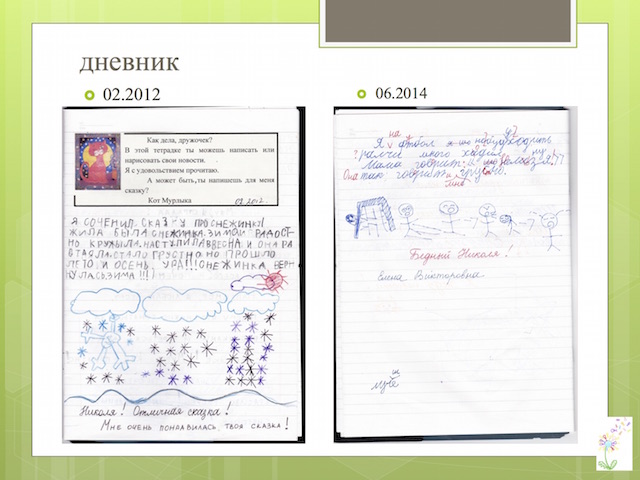 дневник
02.2012
06.2014
Как дела, дружочек?
В этой тетрадке ты можешь написать или
нарисовать свои новости.
Я с удовольствием прочитаю.
А может быть, ты напишешь для меня
сказку?
Кот Мурлыка 02.2012.
Я СОЧЕНИЛ СКАЗКУ ПРО СНЕЖИНКУ
ЖИЛА БЫЛА СНЕЖИНКА. ЗИМОЙ РАДОСТ-
НО КРУЖЫЛА. НАСТУПИЛА ВЕСНА И ОНА РА
СТАЯЛА. СТАЛО ГРУСТНО НО ПРОШЛО
ЛЕТО И ОСЕНЬ. УРА!!! СНЕЖИНКА ВЕРН
НУЛАСЬ ЗИМА!!!
Николя! Отличная сказка!
Мне очень понравилась твоя сказка!
на
Я футбол я
много
Мама говорит
Она так говорит
мне
Бедный Николя!
Елена Викторовна